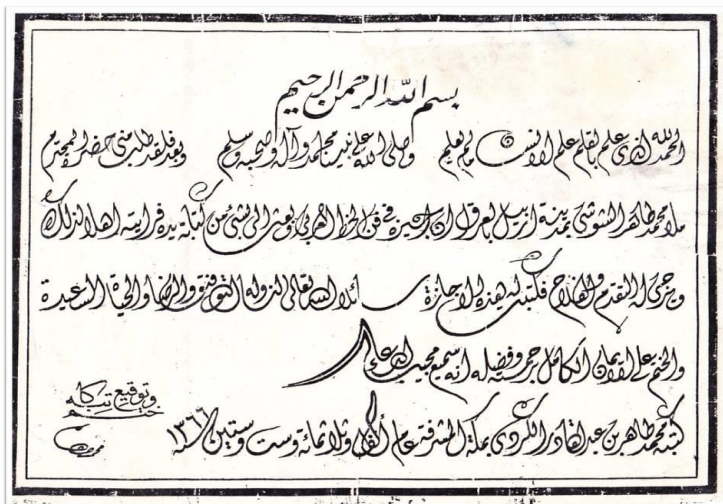 بسم الله الرحمن الرحيم
الحمد لله الذي علم بالقلم علم الانسان مالم يعلم وصلى الله على نبينا محمد وآله وصحبه وسلم وبعد فلقد طلب مني حضرة المحترم
ملا محمد طاهر الشوشي بمدينة اربيل بالعراق ان اجيزه في فن الخط العربي وبعث الي بشئ من كتابة يده فرايته اهلا لذلك
ويرجى له التقدم والفلاح فكتبت له بهذه الاجازة سائلا الله تعالى لنا وله التوفيق والرضا والحياة السعيدة
والختم على الايمان الكامل بحرمته وفضله انه سميع مجيب الدعاء
كتبه محمد طاهر بن عبد القادر الكردي بمكة المشرفة عام ألف وثلاثمائة وست وستين ١٣٦٦
ختم وتوقيع